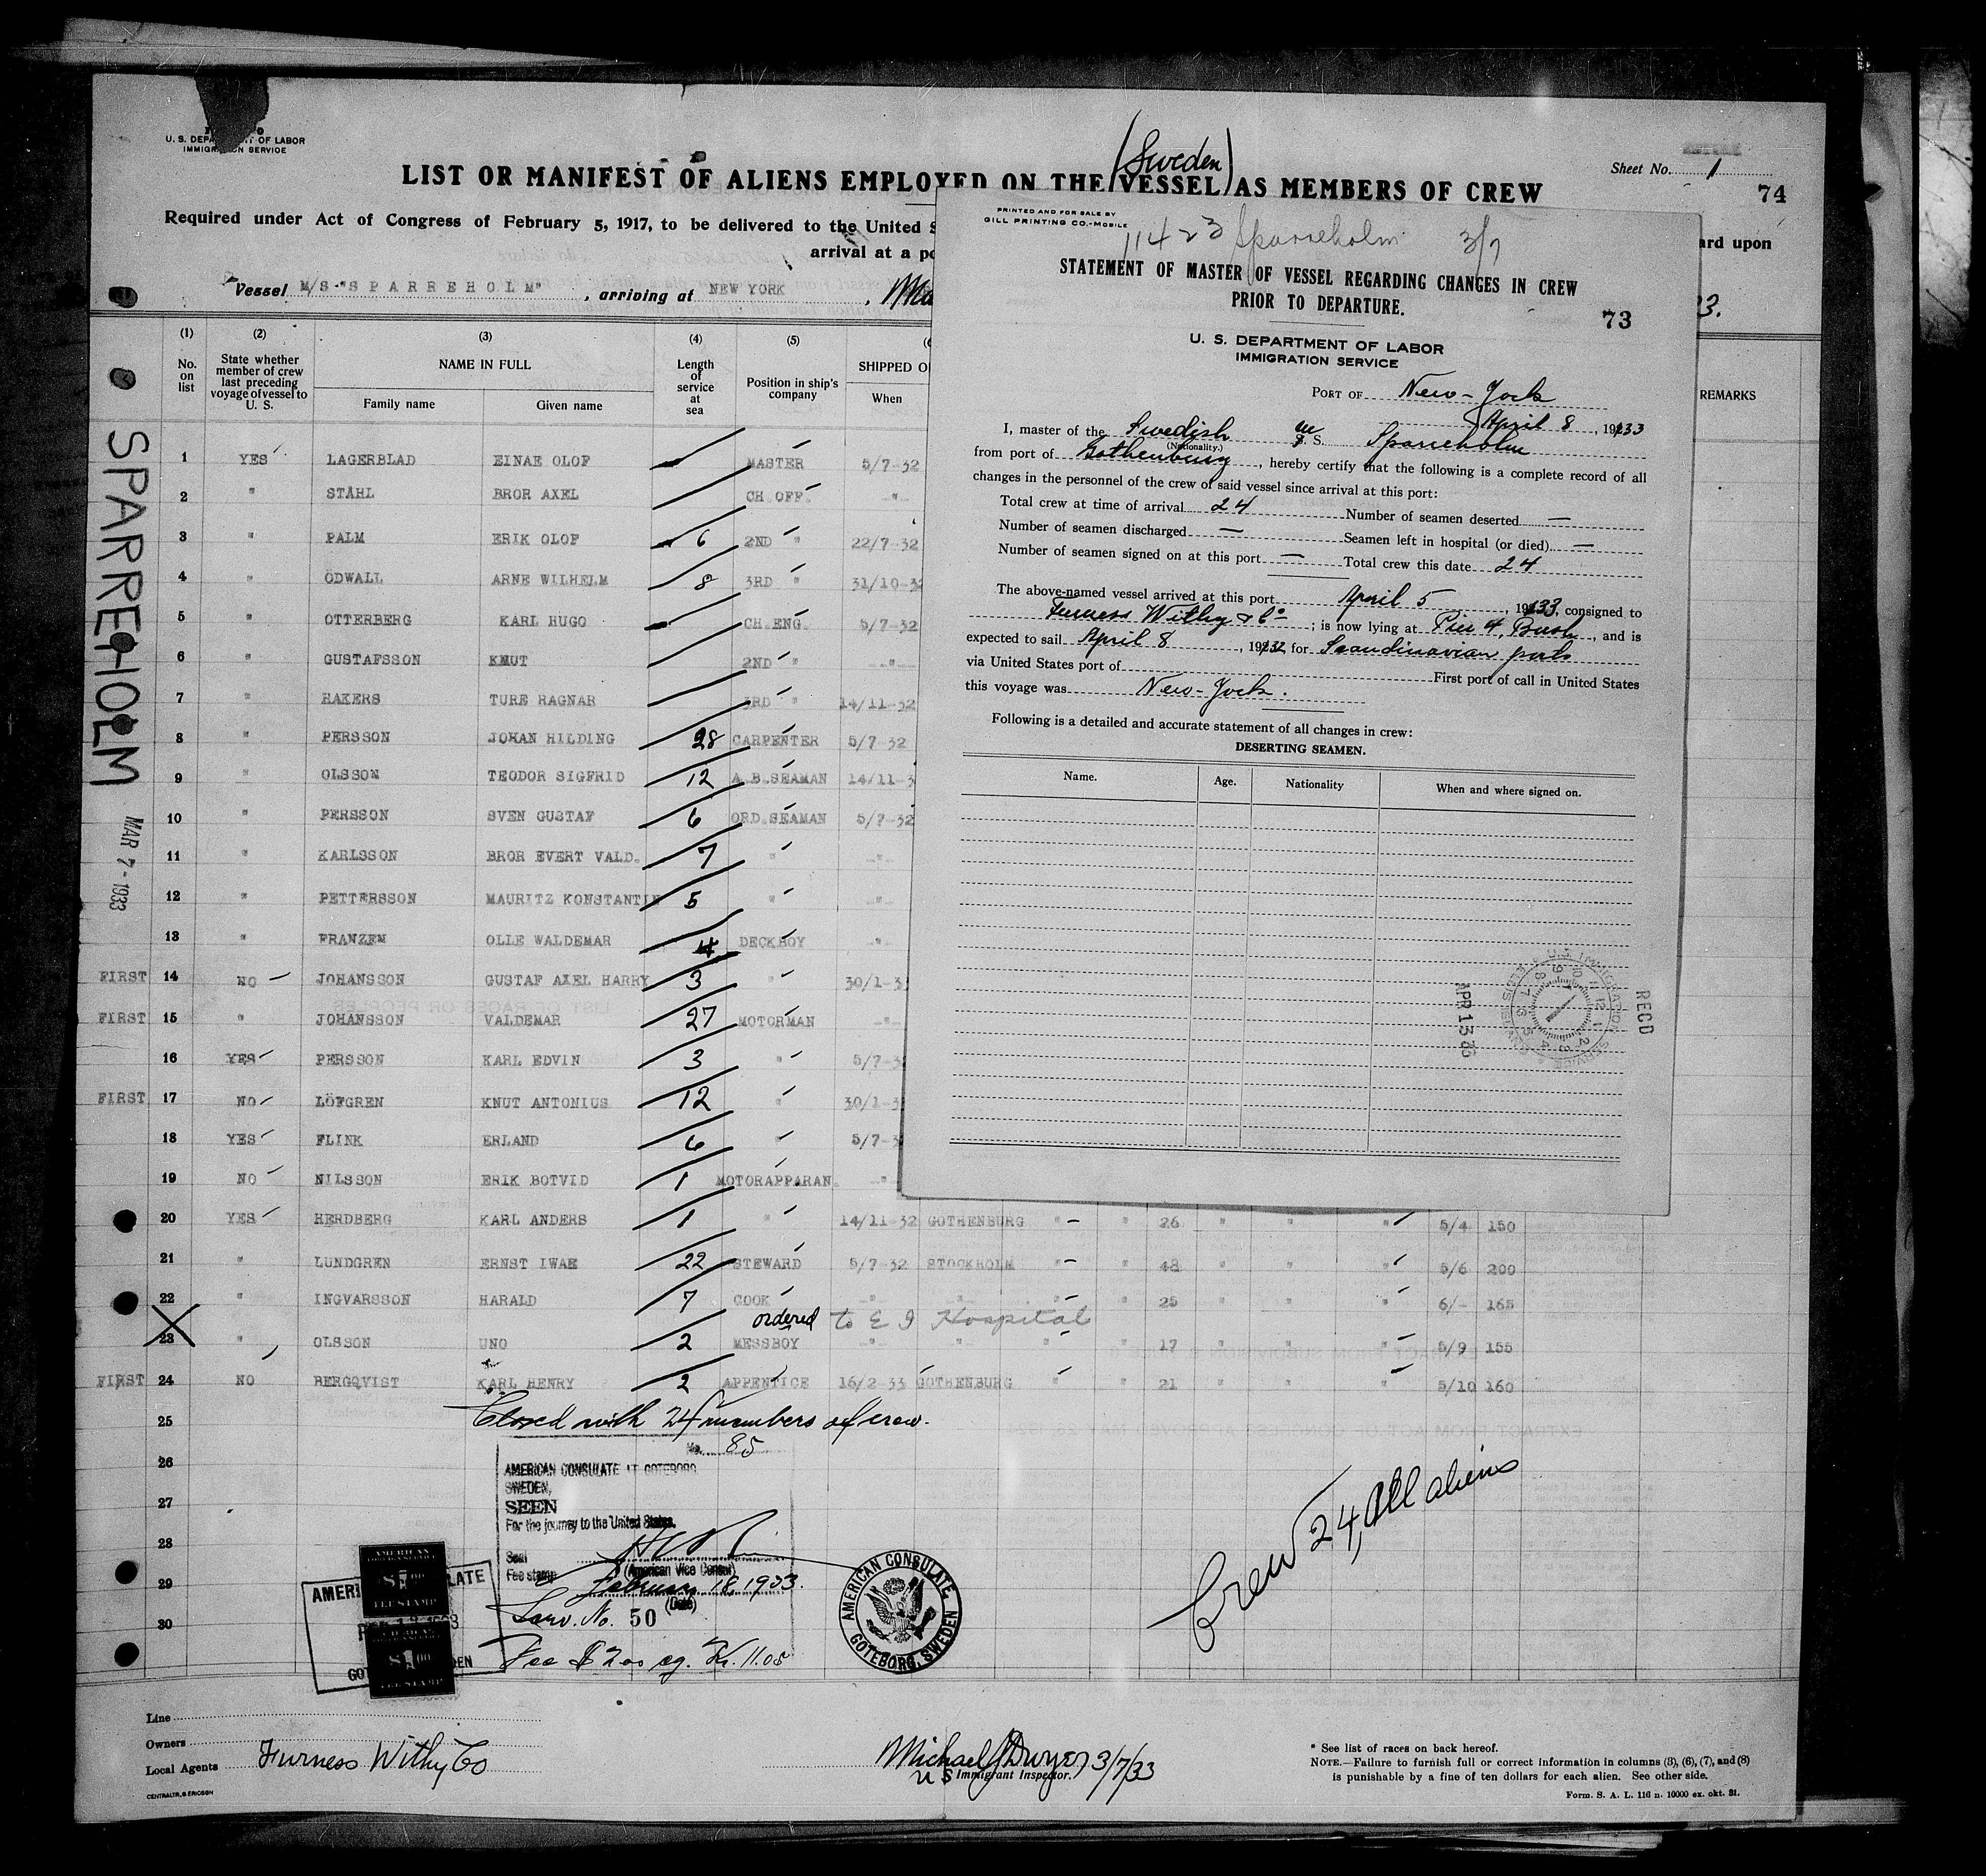 U. S. DEPARTMENT OF LABOR
IMMIGRATION SERVICE
(Sweden)
Sheet No. 1
LIST OR MANIFEST OF ALIENS EMPLOYED ON THE VESSEL AS MEMBERS OF CREW
74
Required under Act of Congress of February 5, 1917, to be delivered to the United S
ard upon
arrival at a po
Vessel M/S "SPARREHOLM", arriving at NEW YORK, Ma
3.
(1) (2) (3) (4) (5) (6
No. on list
State whether member of crew last preceding voyage of vessel to U. S.
NAME IN FULL
Family name Given name
Length of service at sea
Position in ship's company
SHIPPED O
When
REMARKS
SPARREHOLM
MAR 7-1933
1 YES LAGERBLAD EINAE OLOF MASTER 5/7-32
2 " STÅHL BROR AXEL CH.OFF. -"-
3 " PALM ERIK OLOF 6 2ND " 22/7-32
4 " ÖDWALL ARNE WILHELM 8 3RD " 31/10-32
5 " OTTERBERG KARL HUGO CH.ENG. 5/7-32
6 " GUSTAFSSON KNUT 2ND " -"-
7 " HAKERS TURE RAGNAR 3RD " 14/11-32
8 " PERSSON JOHAN HILDING 28 CARPENTER 5/7-32
9 " OLSSON TEODOR SIGFRID 12 A.B.SEAMAN 14/11-3
10 " PERSSON SVEN GUSTAF 6 ORD.SEAMAN 5/7-32
11 " KARLSSON BROR EVERT VALD. 7 " -"-
12 " PETTERSSON MAURITZ KONSTANTIN 5 " -"-
13 " FRANZEN OLLE WALDEMAR 4 DECKBOY -"-
FIRST 14 NO JOHANSSON GUSTAF AXEL HARRY 3 " 30/1-3
FIRST 15 " JOHANSSON VALDEMAR 27 MOTORMAN -"-
16 YES PERSSON KARL EDVIN 3 " 5/7-3
FIRST 17 NO LÖFGREN KNUT ANTONIUS 12 " 30/1-3
18 YES FLINK ERLAND 6 " 5/7-3
19 NO NILSSON ERIK BOTVID 1 MOTORAPPARAN. -"
20 YES HERDBERG KARL ANDERS 1 " 14/11-32 GOTHENBURG " " 26 " " " 5/4 150
21 " LUNDGREN ERNST IWAE 22 STEWARD 5/7-32 STOCKHOLM " " 48 " " " 5/6 200
22 " INGVARSSON HARALD 7 COOK " " " " 25 " " " 6/- 165
ordered to E I Hospital
23 " OLSSON UNO 2 MESSBOY -"- " " " 17 " " " 5/9 155
FIRST 24 NO BERGQVIST KARL HENRY 2 APPENTICE 16/2-33 GOTHENBURG " " 21 " " " 5/10 160
25
Closed with 24 members of crew.
26
27
28
29
30
No. 85
AMERICAN CONSULATE AT GOTEBORG
SWEDEN,
SEEN
For the journey to the United States.
Seal
(American Vice Consul)
Fee stamp
February 18, 1933.
(Date)
Serv. No. 50
Fee $2.00 eq. Kr. 11.05
AMERICAN
$1.00
FEE STAMP
AMERICAN
$1.00
FEE STAMP
AMERICAN CONSULATE, GOTEBORG, SWEDEN
Crew 24, All aliens
Line
Owners
Local Agents Furness Withy Co
CENTRALTR. G. ERICSON
Michael J Dwyer 3/7/33
US Immigrant Inspector.
* See list of races on back hereof.
NOTE.—Failure to furnish full or correct information in columns (3), (6), (7), and (8)
is punishable by a fine of ten dollars for each alien. See other side.
Form. S. A. L. 116 n. 10000 ex. okt. 31.
PRINTED AND FOR SALE BY
GILL PRINTING CO.-MOBILE
11423 Sparreholm 3/7
STATEMENT OF MASTER OF VESSEL REGARDING CHANGES IN CREW
PRIOR TO DEPARTURE.
73
U. S. DEPARTMENT OF LABOR
IMMIGRATION SERVICE
PORT OF New-York
April 8, 1933
I, master of the Swedish m S. S. Sparreholm
(Nationality.)
from port of Gothenburg, hereby certify that the following is a complete record of all
changes in the personnel of the crew of said vessel since arrival at this port:
Total crew at time of arrival 24 Number of seamen deserted —
Number of seamen discharged — Seamen left in hospital (or died) —
Number of seamen signed on at this port — Total crew this date 24
The above-named vessel arrived at this port April 5, 1933, consigned to
Furness Withy & Co; is now lying at Pier 4, Bush, and is
expected to sail April 8, 1932 for Scandinavian ports
via United States port of First port of call in United States
this voyage was New-York.
Following is a detailed and accurate statement of all changes in crew:
DESERTING SEAMEN.
Name. Age. Nationality When and where signed on.
RECD
U.S. IMMIGRATION SERVICE
APR 13 33